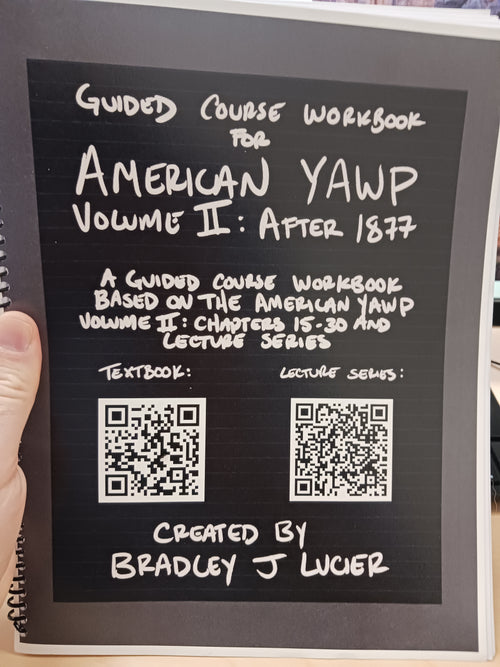 GUIDED COURSE WORKBOOK
FOR
AMERICAN YAWP
VOLUME II: AFTER 1877
A GUIDED COURSE WORKBOOK
BASED ON THE AMERICAN YAWP
VOLUME II: CHAPTERS 15-30 AND
LECTURE SERIES
TEXTBOOK:
LECTURE SERIES:
CREATED BY
BRADLEY J LUCIER